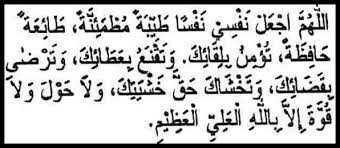 اَللّٰهُمَّ اجْعَلْ نَفْسِيْ نَفْسًا طَيِّبَةً مُطْمَئِنَّةً، طَائِعَةً
حَافِظَةً، تُؤْمِنُ بِلِقَائِكَ. وَتَقْنَعُ بِعَطَائِكَ، وَتَرْضٰى
بِقَضَائِكَ، وَتَخْشَاكَ حَقَّ خَشْيَتِكَ، وَلاَ حَوْلَ وَلاَ
قُوَّةَ إِلاَّ بِاللهِ الْعَلِيِّ الْعَظِيْمِ.